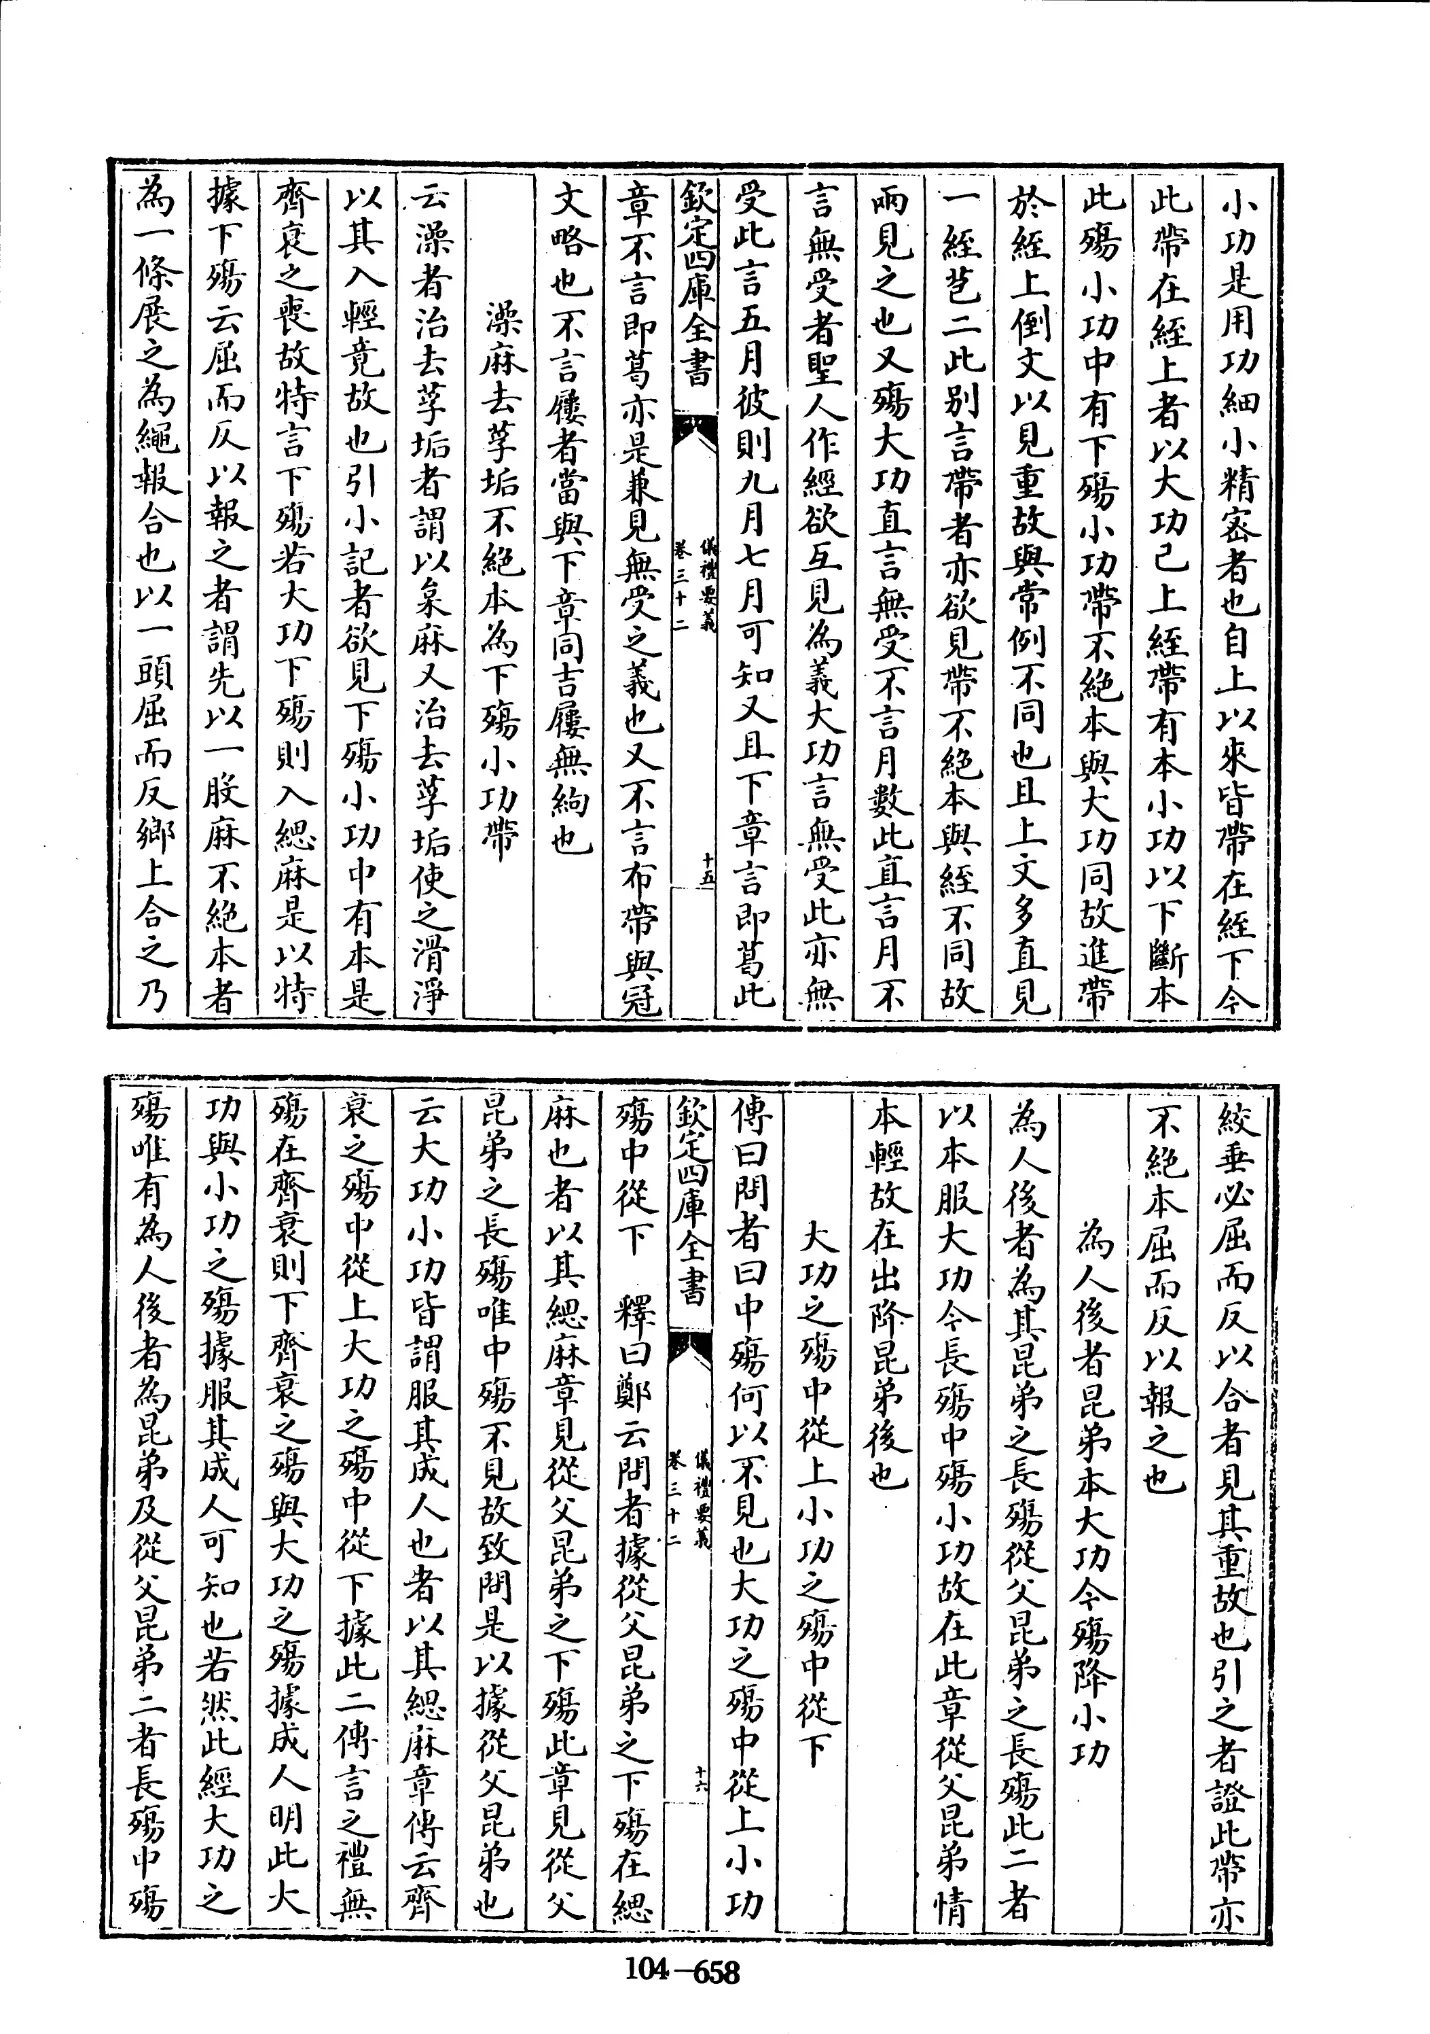 小功是用功細小精密者也自上以來皆帶在絰下今
此帶在絰上者以大功已上絰帶有本小功以下斷本
此殤小功中有下殤小功帶不絶本與大功同故進帶
於絰上倒文以見重故與常例不同也且上文多直見
一絰苞二此别言帶者亦欲見帶不絶本與絰不同故
兩見之也又殤大功直言無受不言月數此直言月不
言無受者聖人作經欲互見為義大功言無受此亦無
受此言五月彼則九月七月可知又且下章言即葛此
欽定四庫全書
儀禮要義
卷三十二
十五
章不言即葛亦是兼見無受之義也又不言布帶與冠
文略也不言屨者當與下章同吉屨無絇也
澡麻去莩垢不絶本為下殤小功帶
云澡者治去莩垢者謂以枲麻又治去莩垢使之滑淨
以其入輕竟故也引小記者欲見下殤小功中有本是
齊衰之喪故特言下殤若大功下殤則入緦麻是以特
據下殤云屈而反以報之者謂先以一股麻不絶本者
為一條展之為繩報合也以一頭屈而反鄉上合之乃
絞垂必屈而反以合者見其重故也引之者證此帶亦
不絶本屈而反以報之也
為人後者昆弟本大功今殤降小功
為人後者為其昆弟之長殤從父昆弟之長殤此二者
以本服大功今長殤中殤小功故在此章從父昆弟情
本輕故在出降昆弟後也
大功之殤中從上小功之殤中從下
傳曰問者曰中殤何以不見也大功之殤中從上小功
欽定四庫全書
儀禮要義
卷三十二
十六
殤中從下　釋曰鄭云問者據從父昆弟之下殤在緦
麻也者以其緦麻章見從父昆弟之下殤此章見從父
昆弟之長殤唯中殤不見故致問是以據從父昆弟也
云大功小功皆謂服其成人也者以其緦麻章傳云齊
衰之殤中從上大功之殤中從下據此二傳言之禮無
殤在齊衰則下齊衰之殤與大功之殤據成人明此大
功與小功之殤據服其成人可知也若然此經大功之
殤唯有為人後者為昆弟及從父昆弟二者長殤中殤
104-658